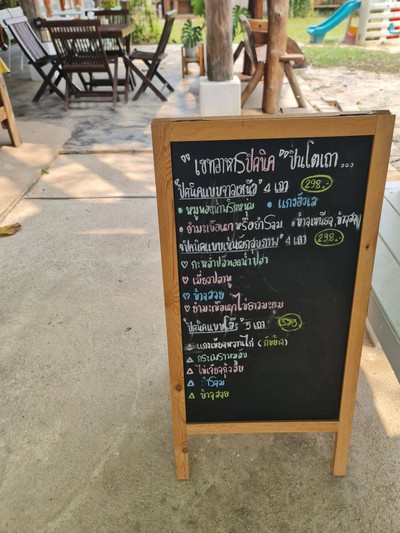 "เซทอาหารปิคนิค" ปิ่นโตเถา...
"ปิคนิคแบบชาวเหนือ" 4 เถา 298.-
• หมูทอดน้ำพริกหนุ่ม • แกงฮังเล
• ยำมะเขือยาวหรือยำรวม • ข้าวเหนียว, ข้าวสวย
"ปิคนิคแบบเซ่นผักสุขภาพ" 4 เถา 298.-
♡ กะหล่ำปลีทอดน้ำปลา
♡ เมี่ยงปลาทู
♡ ข้าวสวย
♡ ยำมะเขือยาวไข่ยางมะตูม
"ปิคนิคแบบโจ๊ะ" 5 เถา
แกงเขียวหวานไก่ (กับข้าว)
△ กระเพราหมูสับ
△ ไข่เจียวกุ้งสับ
△ ยำรวม
△ ข้าวสวย